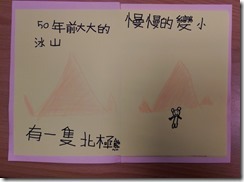 50年前大大的
冰山
有一隻北極
慢慢的變小